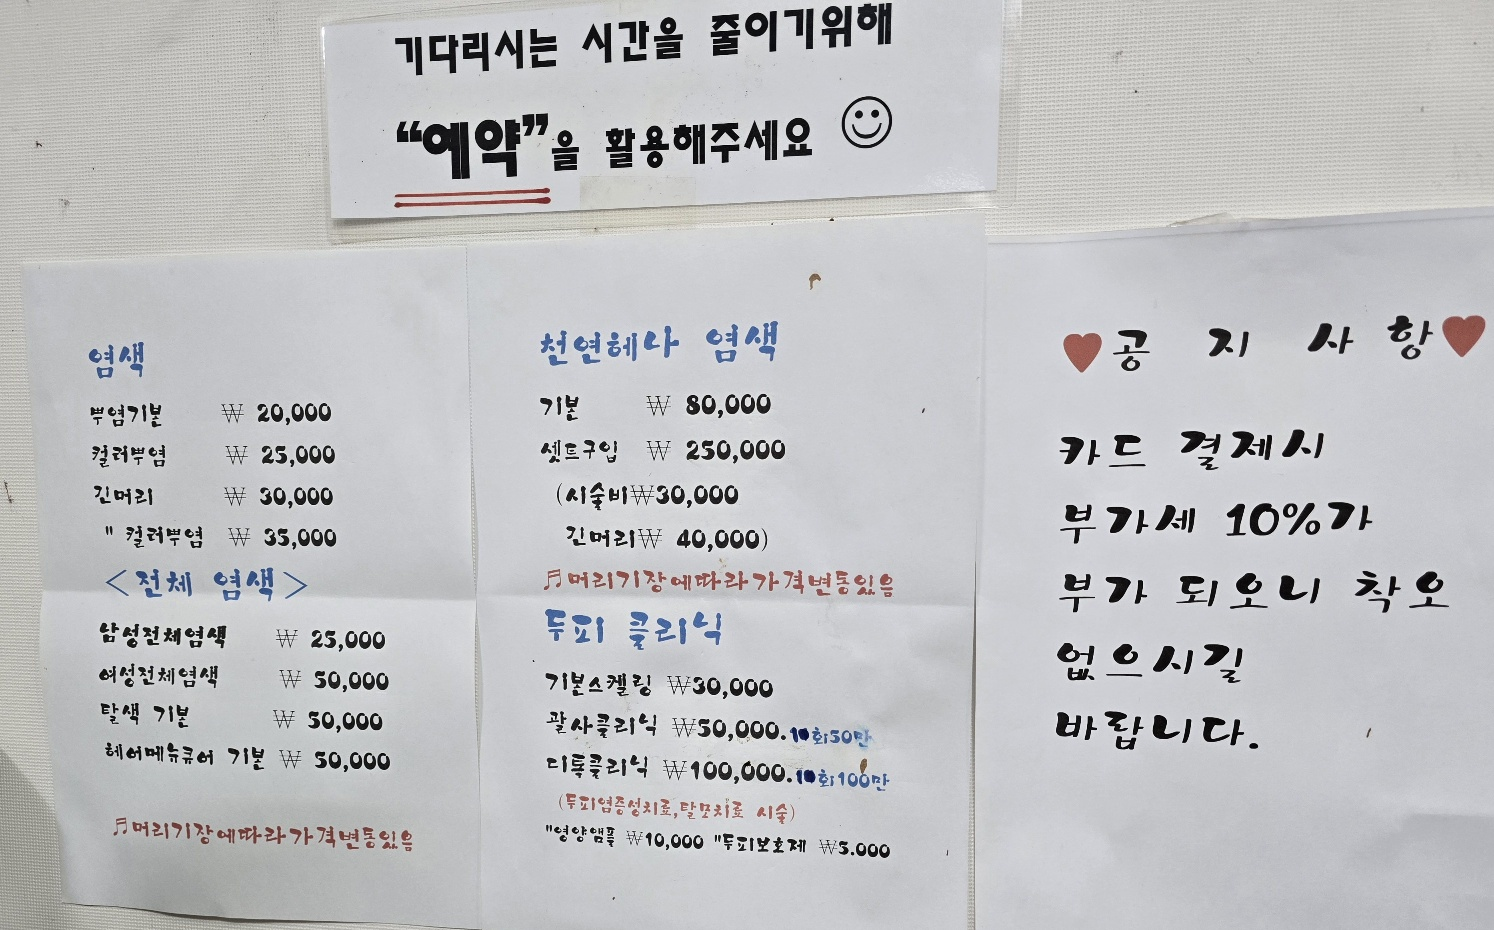 기다리시는 시간을 줄이기위해
“예약”을 활용해주세요
염색
뿌염기본 ₩ 20,000
컬러뿌염 ₩ 25,000
긴머리 ₩ 30,000
" 컬러뿌염 ₩ 35,000
<전체 염색>
남성전체염색 ₩ 25,000
여성전체염색 ₩ 50,000
탈색 기본 ₩ 50,000
헤어메뉴큐어 기본 ₩ 50,000
♬머리기장에따라가격변동있음
천연헤나 염색
기본 ₩ 80,000
셋트구입 ₩ 250,000
(시술비₩30,000
긴머리₩ 40,000)
♬머리기장에따라가격변동있음
두피 클리닉
기본스켈링 ₩30,000
괄사클리닉 ₩50,000.10회50만
디톡클리닉 ₩100,000.10회100만
(두피염증성치료,탈모치료 시술)
"영양앰플 ₩10,000 "두피보호제 ₩5.000
♥공 지 사 항♥
카드 결제시
부가세 10%가
부가 되오니 착오
없으시길
바랍니다.